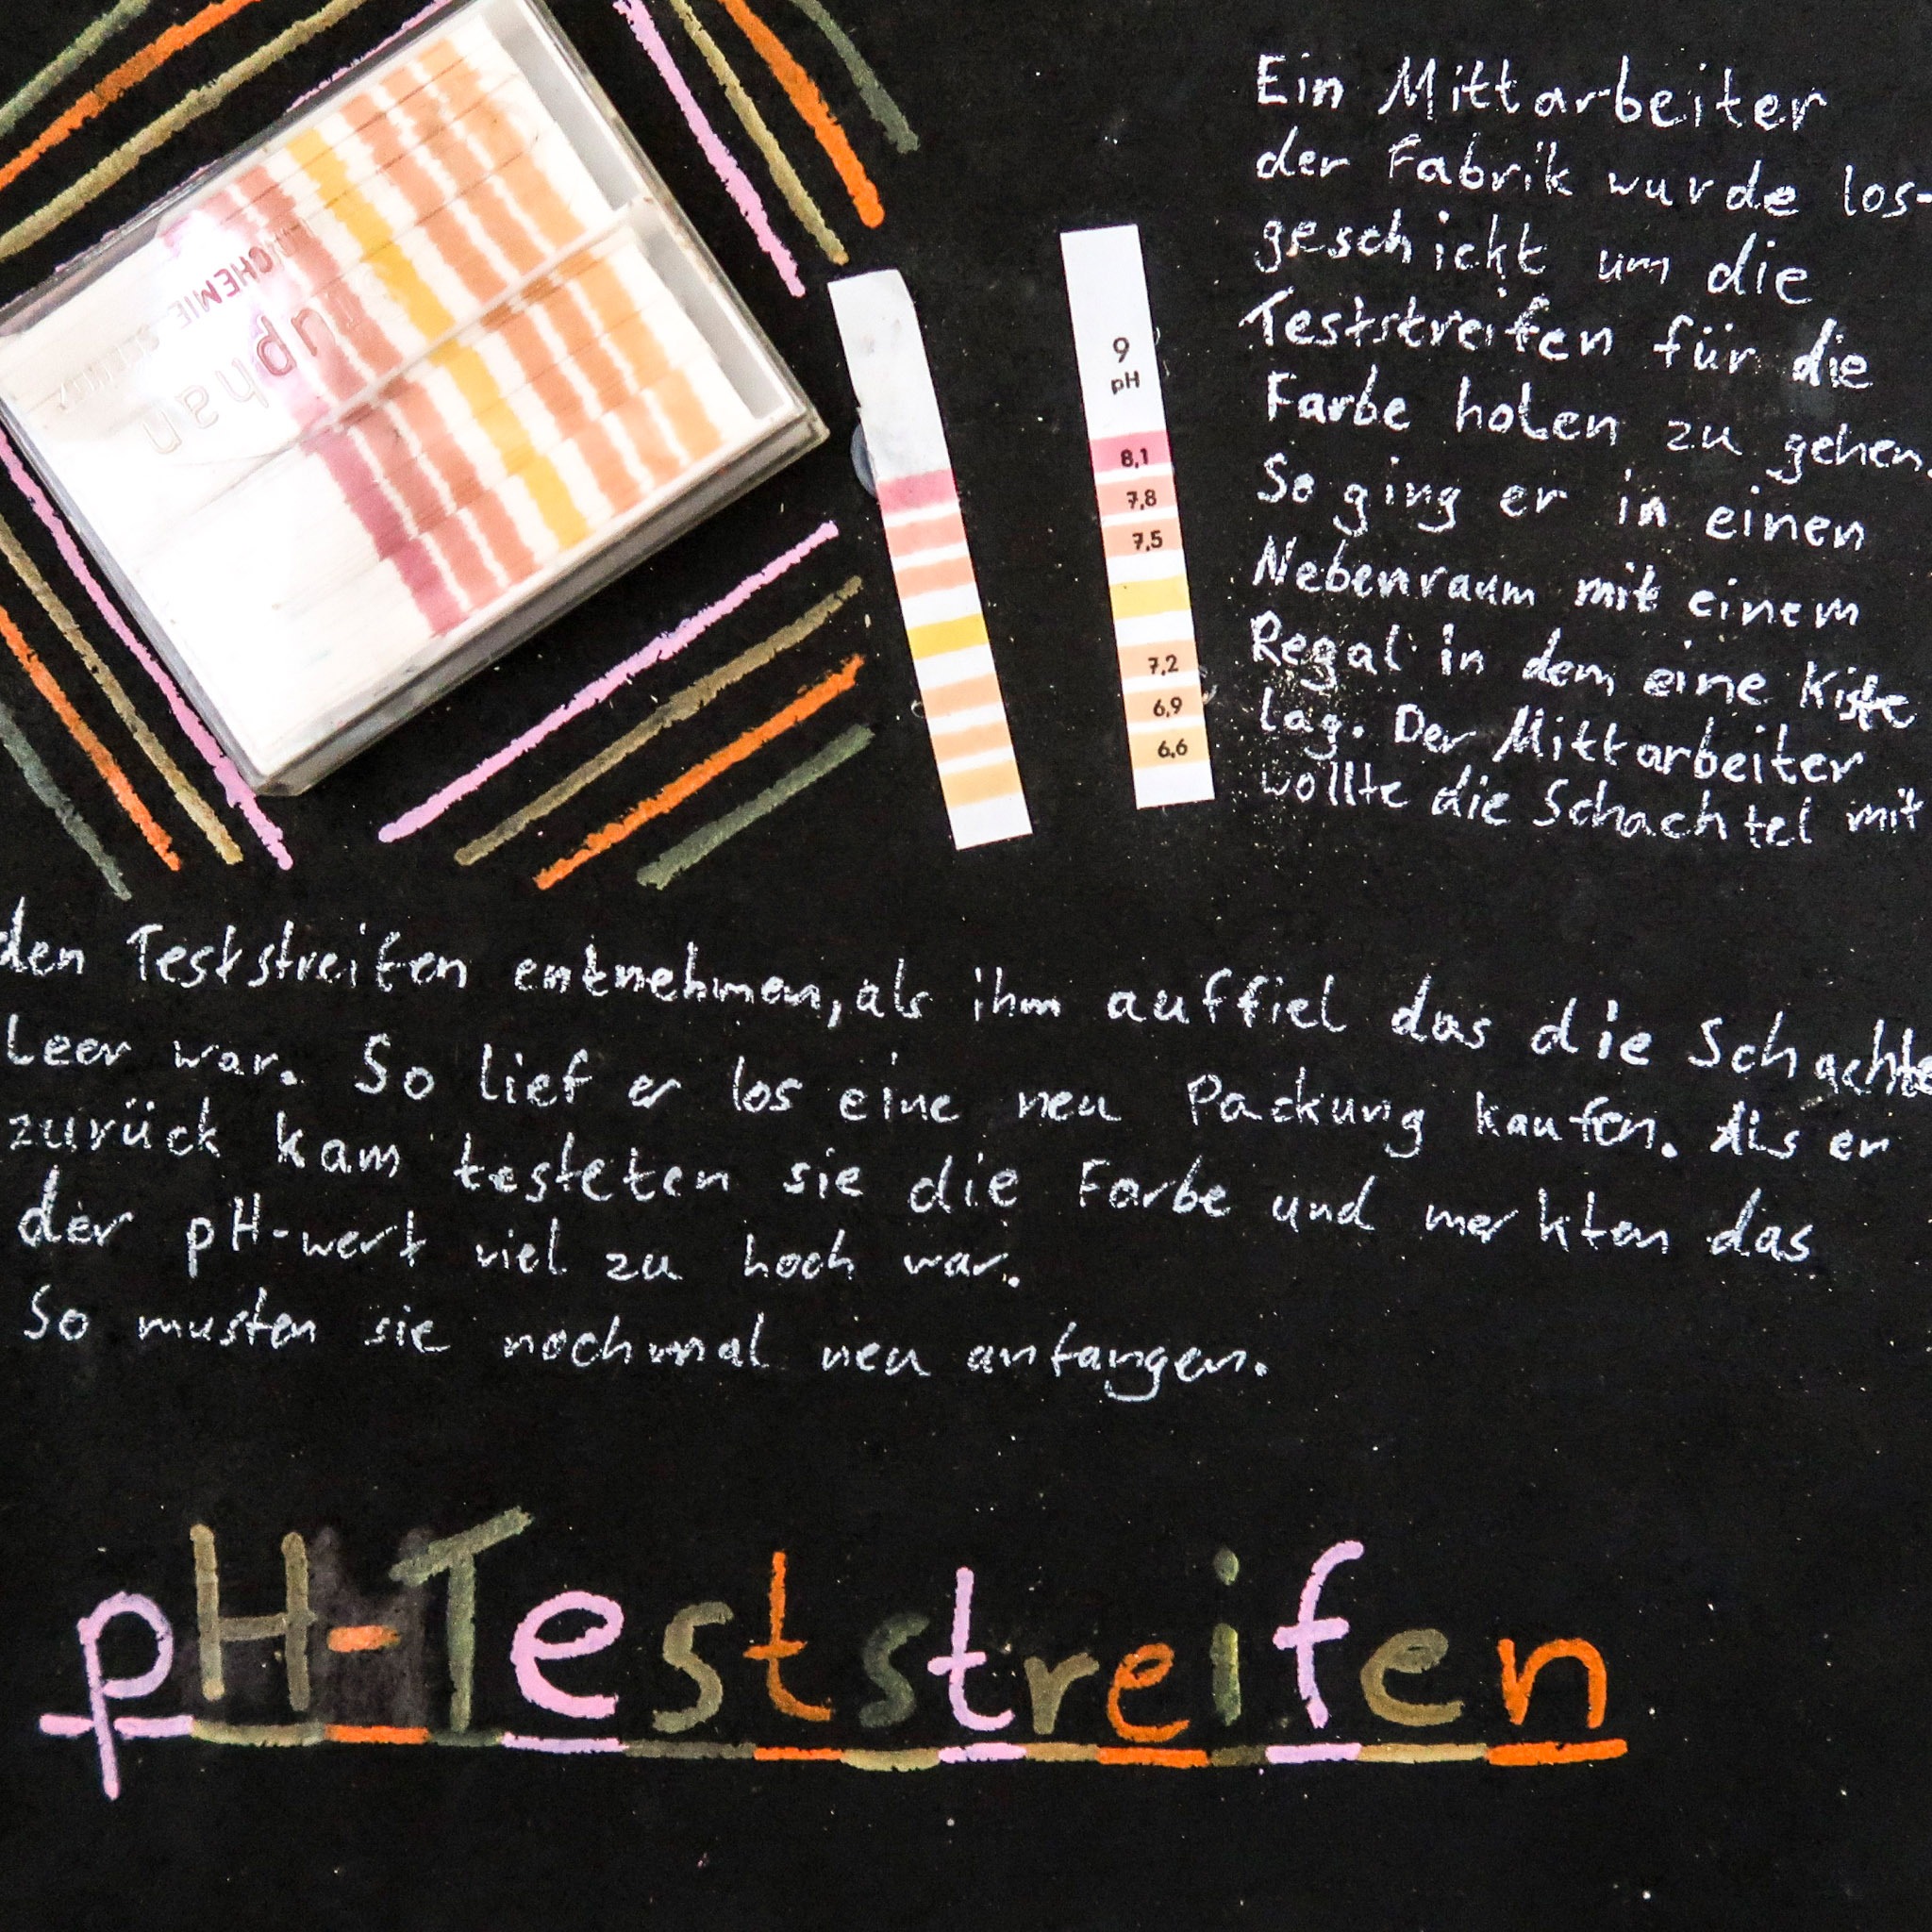 Ein Mittarbeiter
der Fabrik wurde los-
geschickt um die
Teststreifen für die
Farbe holen zu gehen.
So ging er in einen
Nebenraum mit einem
Regal in dem eine Kiste
lag. Der Mittarbeiter
wollte die Schachtel mit
den Teststreifen entnehmen, als ihm auffiel das die Schachte
Leer war. So lief er los eine neu Packung kaufen. Als er
zurück kam testeten sie die Farbe und merkten das
der pH-wert viel zu hoch war.
So musten sie nochmal neu anfangen.
9
pH
8,1
7,8
7,5
7,2
6,9
6,6
pH-Teststreifen